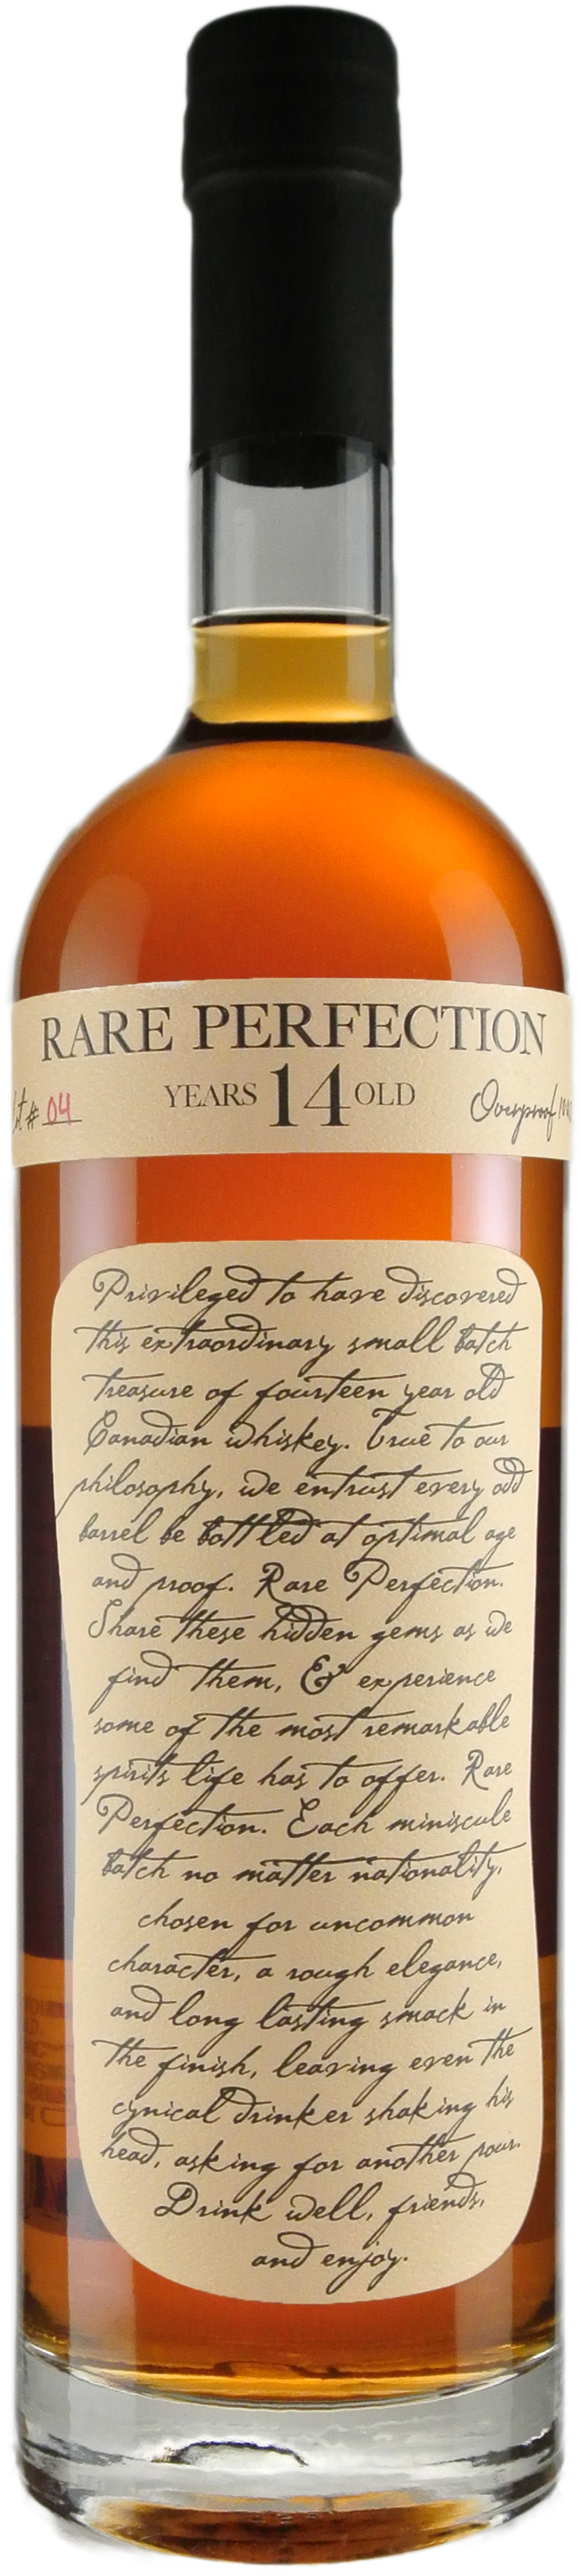 RARE PERFECTION
YEARS 14 OLD
# 04
Overproof
Privileged to have discovered
this extraordinary small batch
treasure of fourteen year old
Canadian whiskey. True to our
philosophy, we entrust every odd
barrel be bottled at optimal age
and proof. Rare Perfection.
Share these hidden gems as we
find them, & experience
some of the most remarkable
spirits life has to offer. Rare
Perfection. Each miniscule
batch no matter nationality,
chosen for uncommon
character, a rough elegance,
and long lasting smack in
the finish, leaving even the
cynical drinker shaking his
head, asking for another pour.
Drink well, friends,
and enjoy.